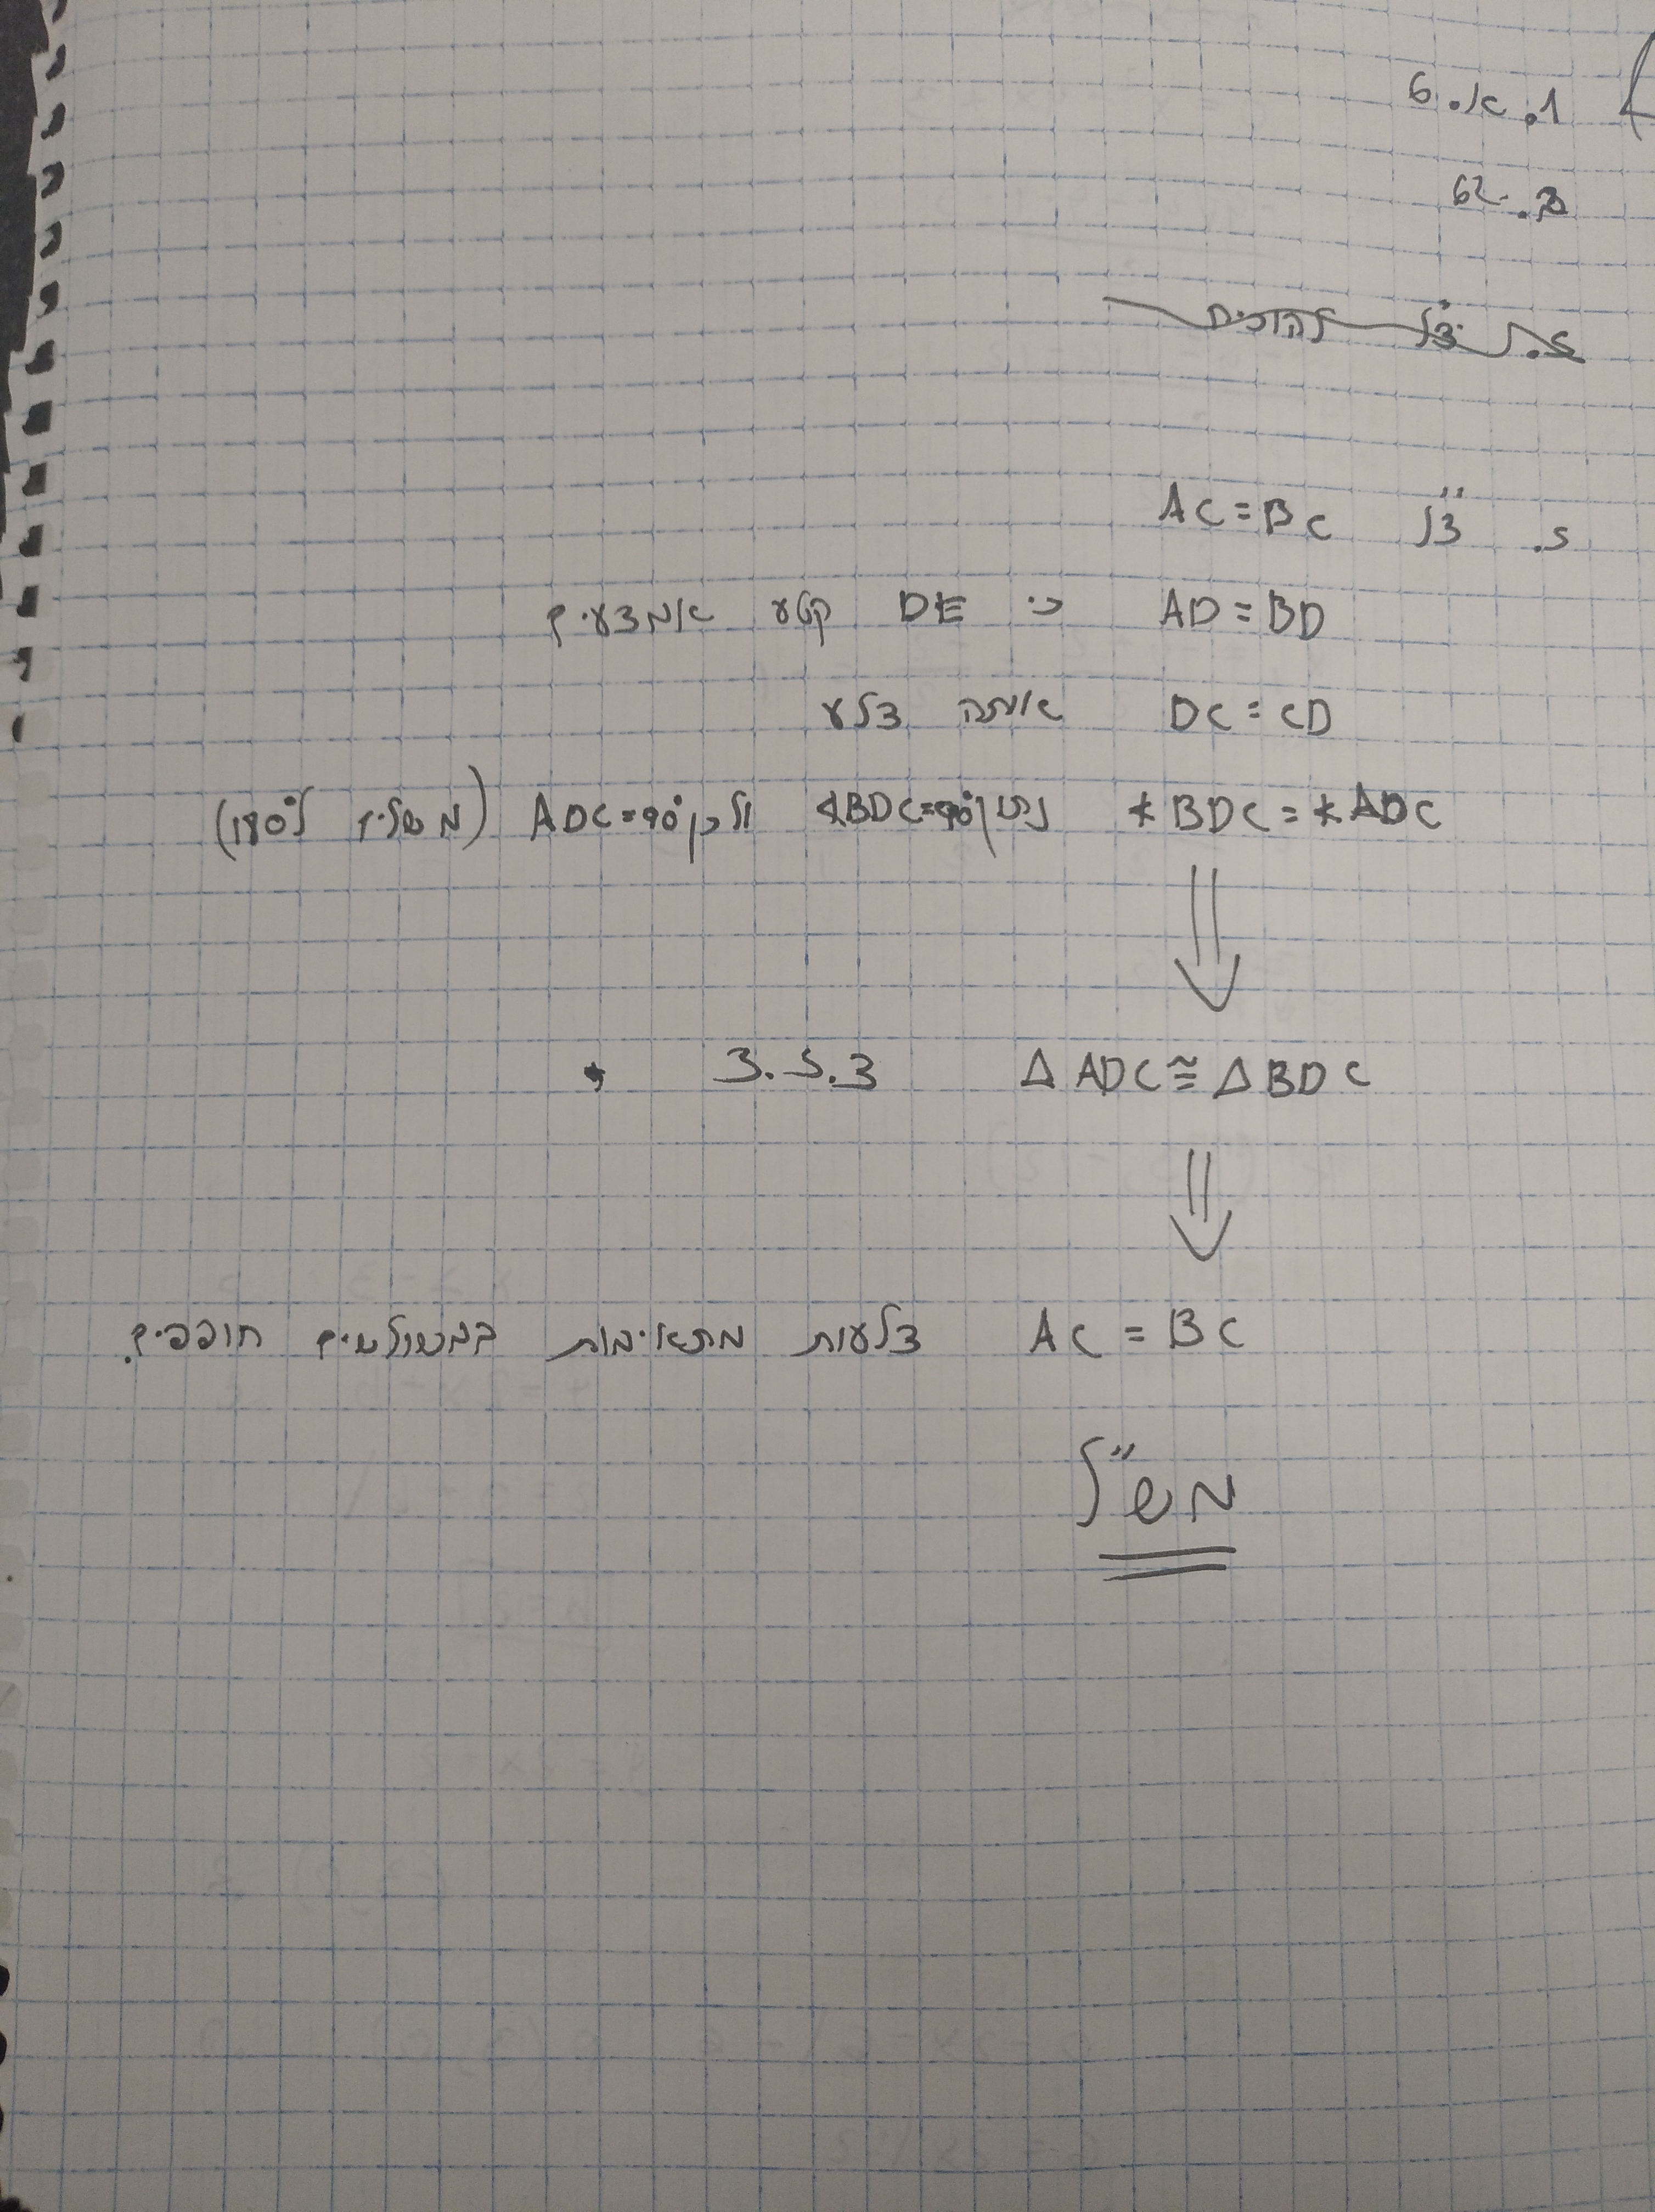 1. א. 6
ב. 62
ג. צ"ל להוכיח
ד. צ"ל AC = BC
AD = BD כי DE קטע אמצעים
DC = CD אותה צלע
∢BDC = ∢ADC נתון ∢BDC=90° ולכן ADC=90° (משלים ל180°)
⇓
Δ ADC ≅ Δ BDC צ.ז.צ
⇓
AC = BC צלעות מתאימות במשולשים חופפים.
מש"ל